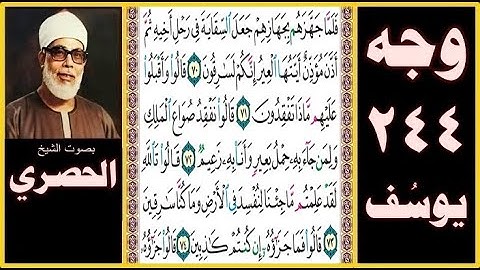 وجه
٢٤٤
يوسُف
فَلَمَّا جَهَّزَهُم بِجَهَازِهِمْ جَعَلَ ٱلسِّقَايَةَ فِى رَحْلِ أَخِيهِ ثُمَّ
أَذَّنَ مُؤَذِّنٌ أَيَّتُهَا ٱلْعِيرُ إِنَّكُمْ لَسَٰرِقُونَ ٧٠ قَالُوا۟ وَأَقْبَلُوا۟
عَلَيْهِم مَّاذَا تَفْقِدُونَ ٧١ قَالُوا۟ نَفْقِدُ صُوَاعَ ٱلْمَلِكِ
وَلِمَن جَآءَ بِهِۦ حِمْلُ بَعِيرٍ وَأَنَا۠ بِهِۦ زَعِيمٌ ٧٢ قَالُوا۟ تَٱللَّهِ
لَقَدْ عَلِمْتُم مَّا جِئْنَا لِنُفْسِدَ فِى ٱلْأَرْضِ وَمَا كُنَّا سَٰرِقِينَ
٧٣ قَالُوا۟ فَمَا جَزَٰٓؤُهُۥٓ إِن كُنتُمْ كَٰذِبِينَ ٧٤ قَالُوا۟ جَزَٰٓؤُهُۥ
بصوت الشيخ
الحصري